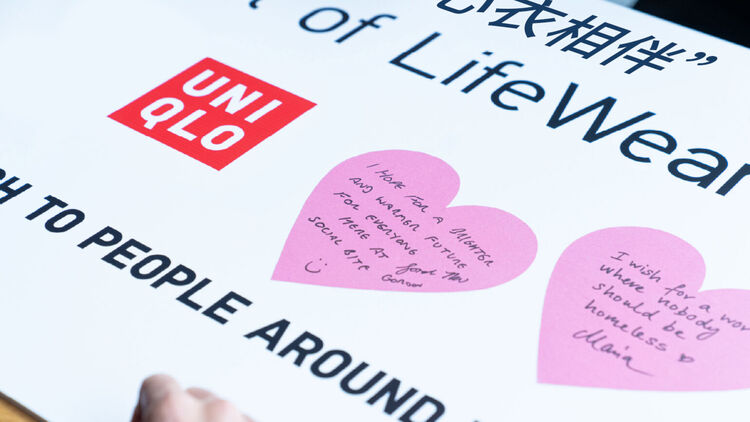 心衣相伴”
of LifeWear
UNI
QLO
TO PEOPLE AROUND
I HOPE FOR A BRIGHTER
AND WARMER FUTURE
FOR EVERYONE
HERE AT
SOCIAL BITE
GORDON
I wish for a
where nobody
should be
homeless
Maria